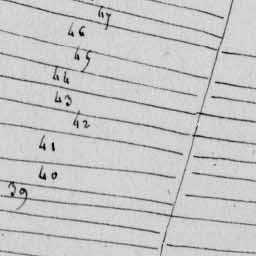 47
46
45
44
43
42
41
40
39